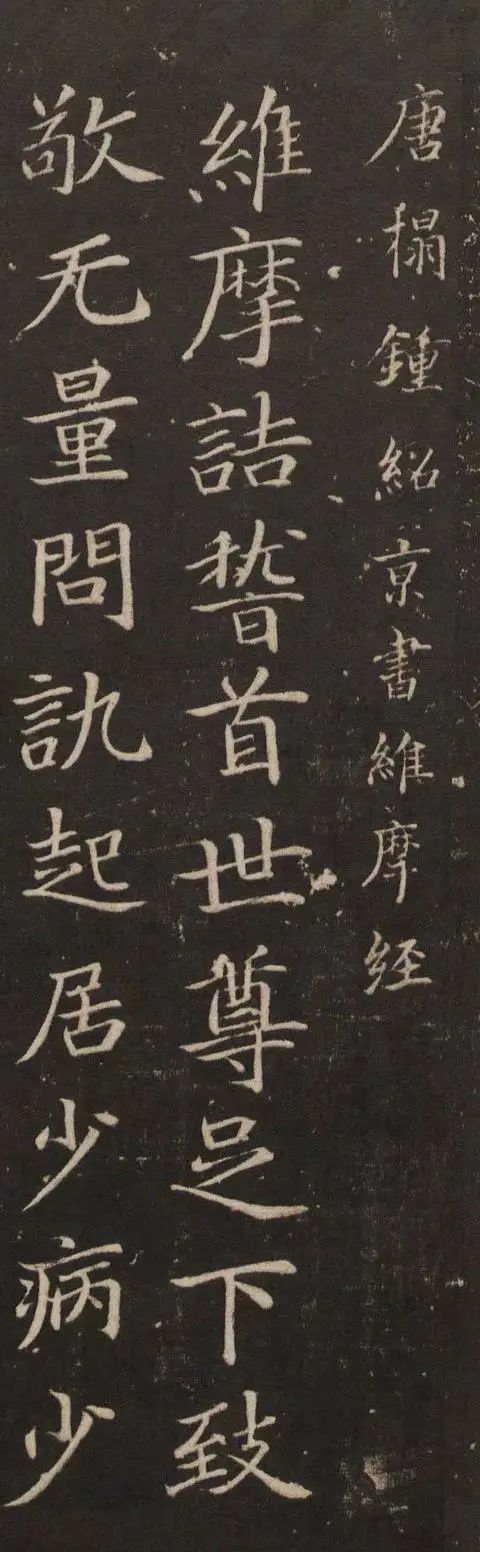 唐榻鍾紹京書維摩経
維摩詰稽首世尊足下致
敬无量問訊起居少病少